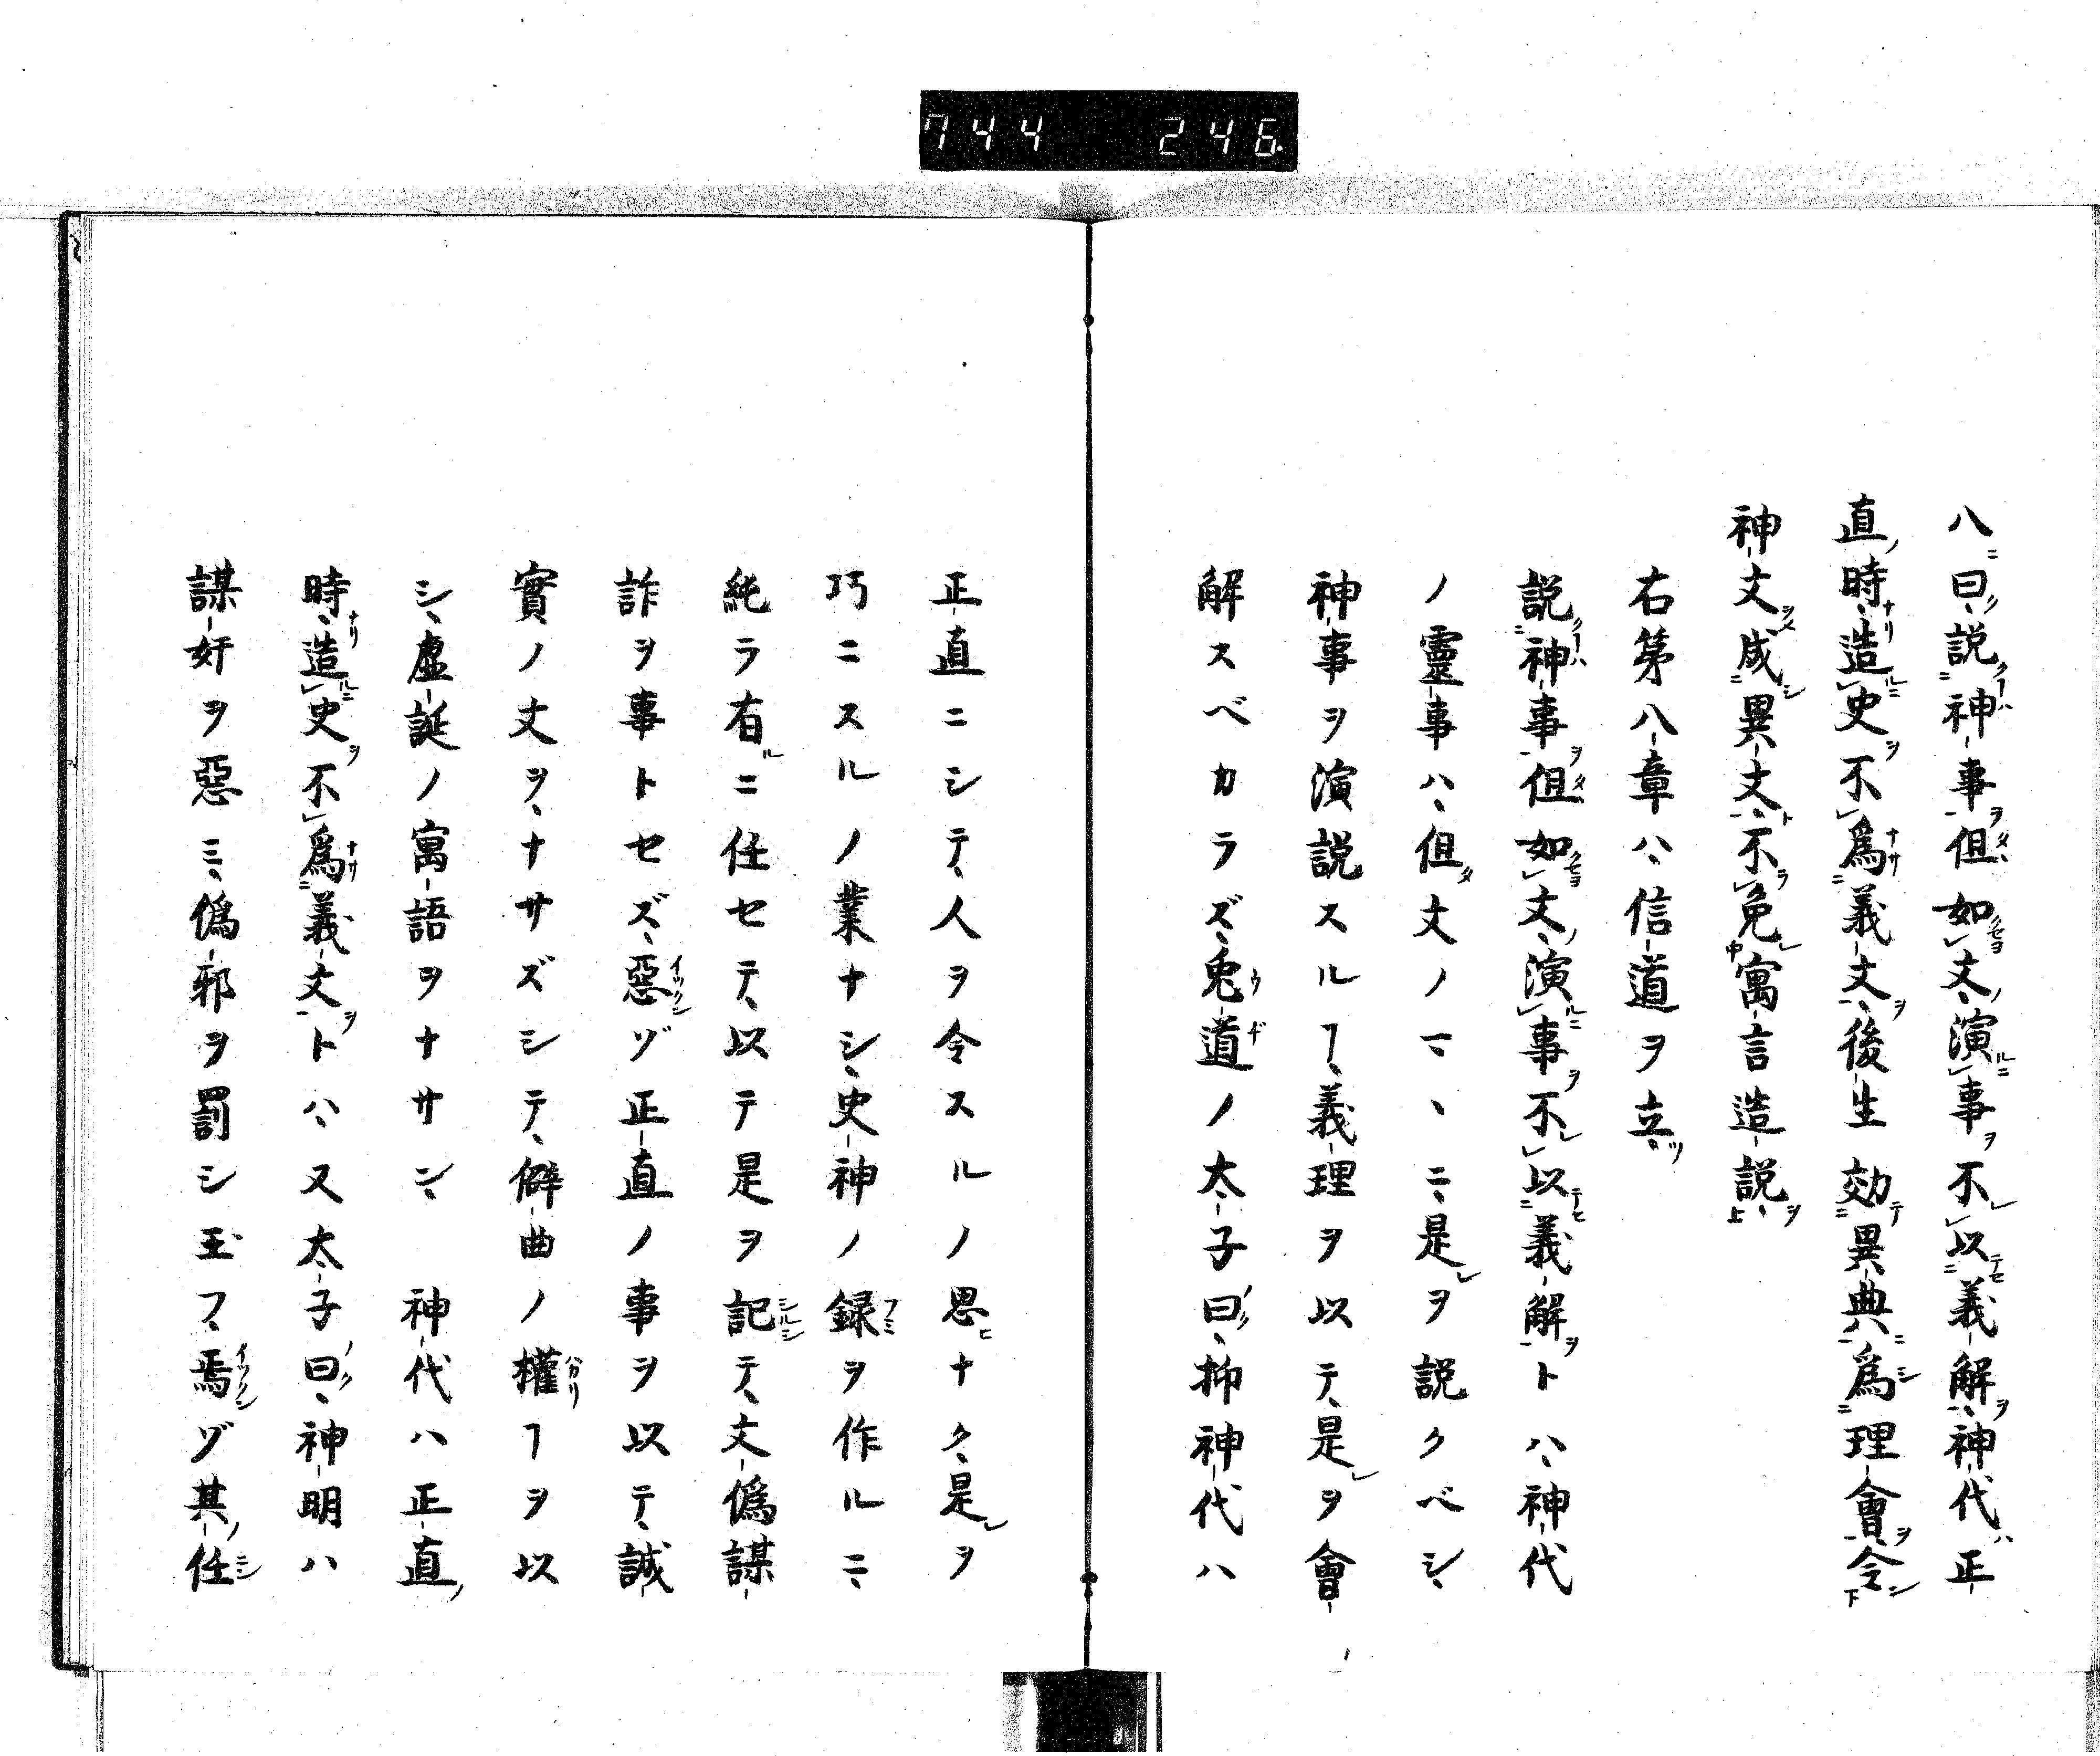 744 246
八曰、説神事但如文、演事不以義解、神代正
直時、造史不為義文、後生効異典為理會令
神文咸異文、不免寓言造説、
右第八章ハ、信道ヲ立、
説神事但如文、演事不以義解トハ、神代
ノ靈事ハ、但文ノマヽニ、是ヲ説クベシ、
神事ヲ演説スルヿ、義理ヲ以テ、是ヲ會
解スベカラズ、兎道ノ太子曰、抑神代ハ
正直ニシテ、人ヲ令スルノ思ナク、是ヲ
巧ニスルノ業ナシ、史神ノ録ヲ作ルニ、
純ラ有ニ任セテ、以テ是ヲ記テ、文偽謀
詐ヲ事トセズ、惡ゾ正直ノ事ヲ以テ、誠
實ノ文ヲ、ナサズシテ、僻曲ノ權ヿヲ以
シ、虚誕ノ寓語ヲナサン、神代ハ正直
時、造史不為義文トハ、又太子曰、神明ハ
謀奸ヲ惡ミ、偽邪ヲ罰シ玉フ、焉ゾ其任